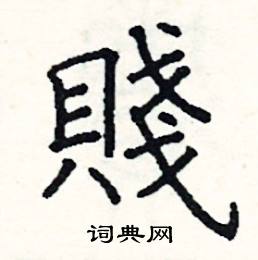 賤
词典网